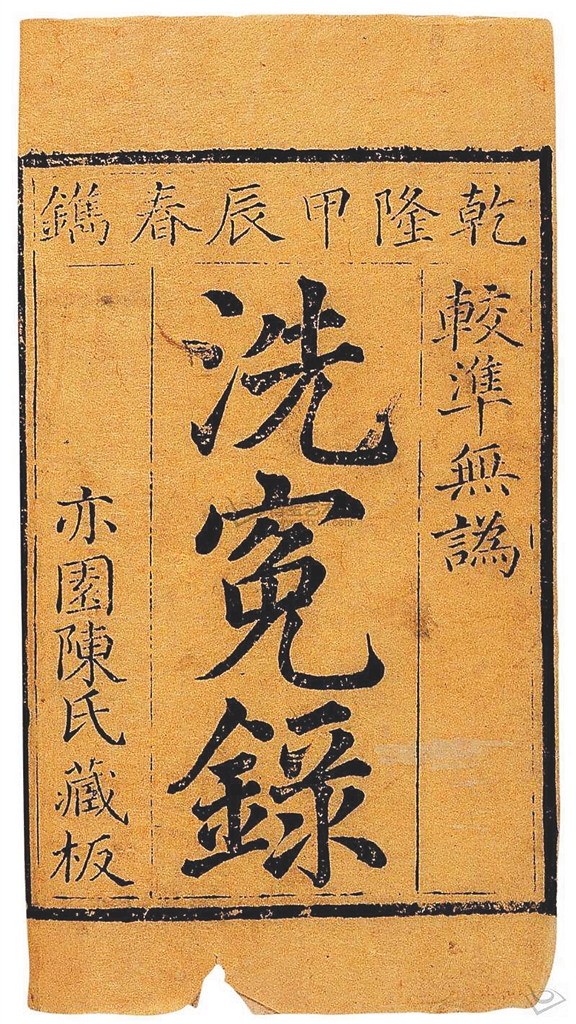 乾隆甲辰春鐫
較準無譌
洗冤錄
亦園陳氏藏板